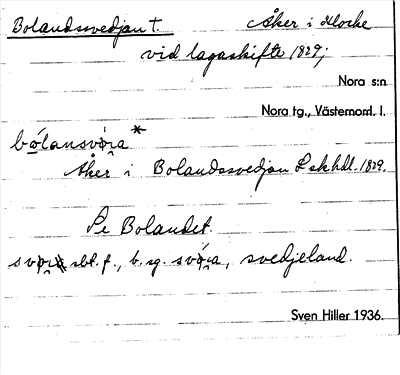 Bolandssvedjan t.
Åker i Klocke
vid lagaskifte 1829;
Nora s:n
Nora tg., Västernorrl. l.
bo̲lansvø̯ia*
Åker i Bolandssvedjan Lskhdl. 1829.
Se Bolandet.
sbt. f., b. sg. svø̯ia, svedjeland.
Sven Hiller 1936.